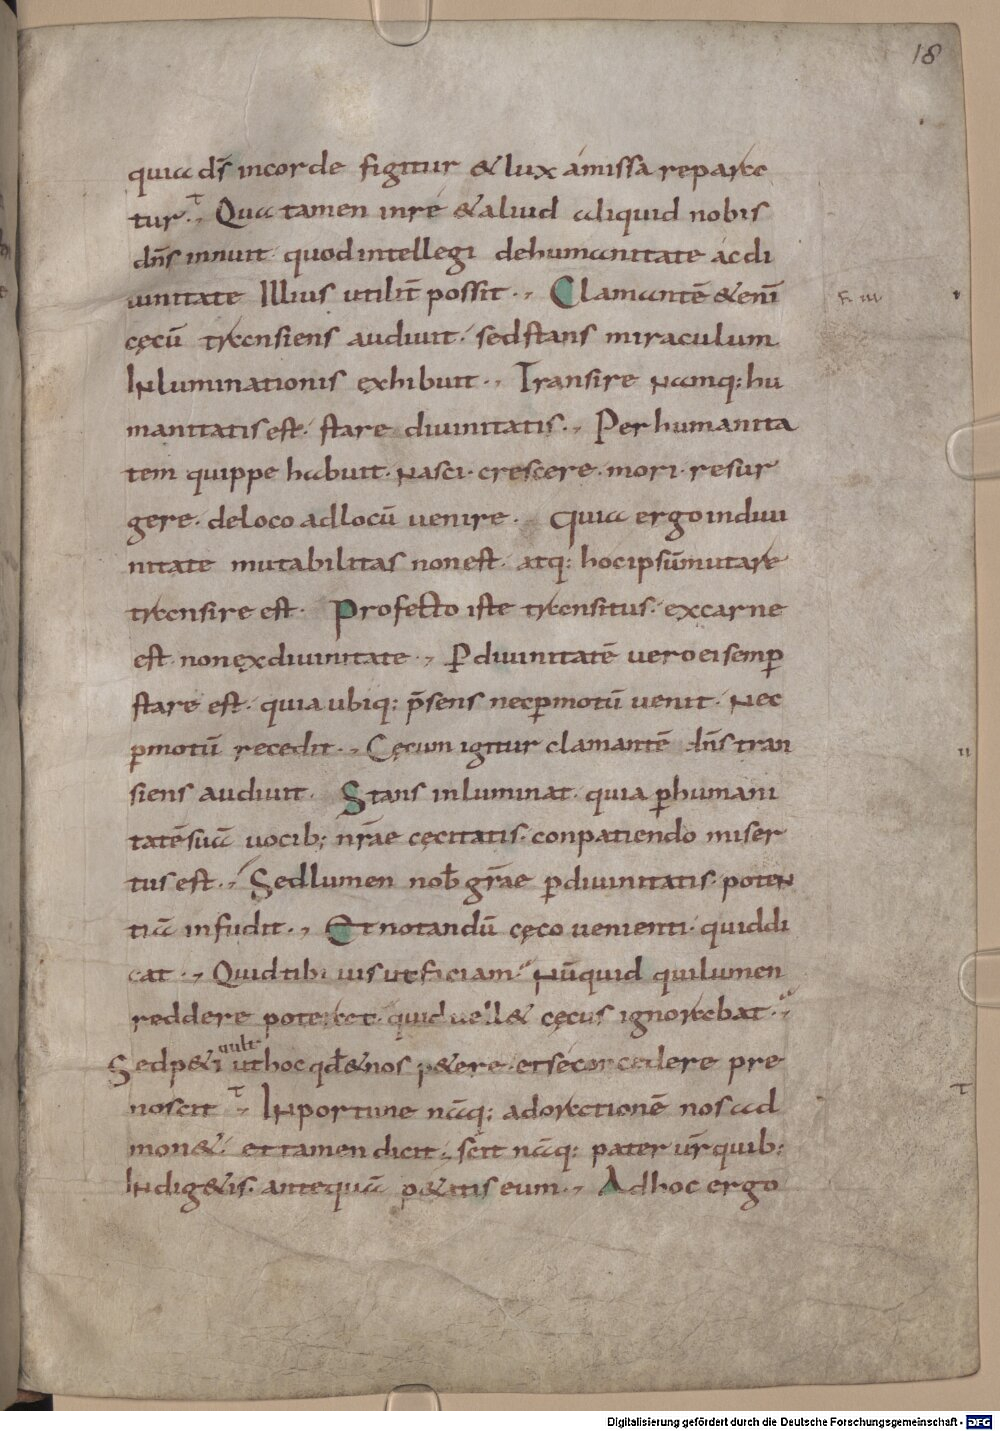 18
quia ds̄ incorde figitur & lux amissa repara
tur. Qua tamen inre &aliud aliquid nobis
dn̄s innuit quodintellegi dehumanitate acdi
uinitate Illius utilit̄ possit. Clamantē &enī
cęcū transiens audiuit. sedstans miraculum
Inluminationis exhibuit. Transire namq: hu
manitatisest. stare diuinitatis. Perhumanita
tem quippe habuit. nasci. crescere. mori. resur
gere. deloco adlocū uenire. Quia ergo indiui
nitate mutabilitas nonest. atq: hocipsūmutare
transire est. Profecto iste transitus. excarne
est. nonexdiuinitate. Ꝑ diuinitatē uero eisemꝑ
stare est. quia ubiq: p̄sens necꝑmotū uenit. Nec
ꝑmotū recedit. Cęcum igitur clamantē dn̄s tran
siens audiuit. Stans inluminat. quia ꝑhumani
tatēsuā uocib; nr̄ae cęcitatis. conpatiendo miser
tus est. Sedlumen nob̄ gr̄ae ꝑdiuinitatis poten
tiā infudit. Et notandū cęco uenienti. quiddi
cat. Quidtibi uis utfaciam. Nūquid quilumen
reddere poterat. quid uell& cęcus ignorabat.
uult
Sedp&i uthoc qd̄ &nos p&ere. etsecon cedere pre
noscit. Inportune nāq: adorationē nos ad
mon&. et tamen dicit. scit nāq: pater ur̄ quib:
Indig&is. antequā p&itis eum. Adhoc ergo
Digitalisierung gefördert durch die Deutsche Forschungsgemeinschaft - DFG